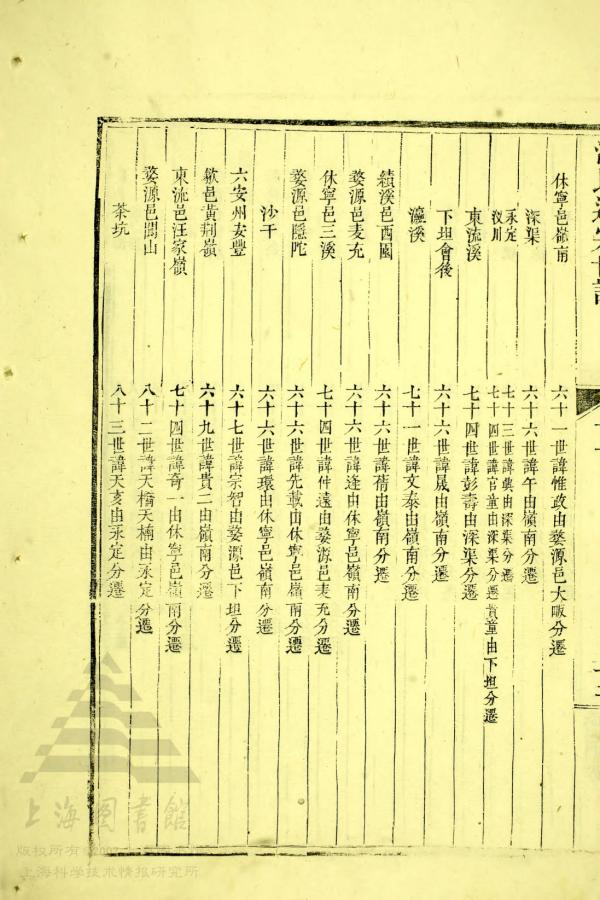 休寧邑嶺南　六十一世諱惟政由婺源邑大畈分遷
深渠　六十六世諱午由嶺南分遷
永定　七十三世諱與由深渠分遷
汊川　七十四世諱官童由深渠分遷貴童由下坦分遷
東流溪　七十四世諱彭壽由深渠分遷
下坦會後　六十六世諱晟由嶺南分遷
瀛溪　七十一世諱文泰由嶺南分遷
績溪邑西園　六十六世諱蒨由嶺南分遷
婺源邑麦充　六十六世諱逢由休寧邑嶺南分遷
休寧邑三溪　七十四世諱仲遠由婺源邑麦充分遷
婺源邑隱陀　六十六世諱先載由休寧邑嶺南分遷
沙干　六十六世諱環由休寧邑嶺南分遷
六安州安豐　六十七世諱宗智由婺源邑下坦分遷
歙邑黃荆嶺　六十九世諱貴二由嶺南分遷
東流邑汪家嶺　七十四世諱奇一由休寧邑嶺南分遷
婺源邑閬山　八十二世諱天橋天楠由永定分遷
茶坑　八十三世諱天亥由永定分遷
上海圖書館
版权所有 2007
上海科学技术情报研究所